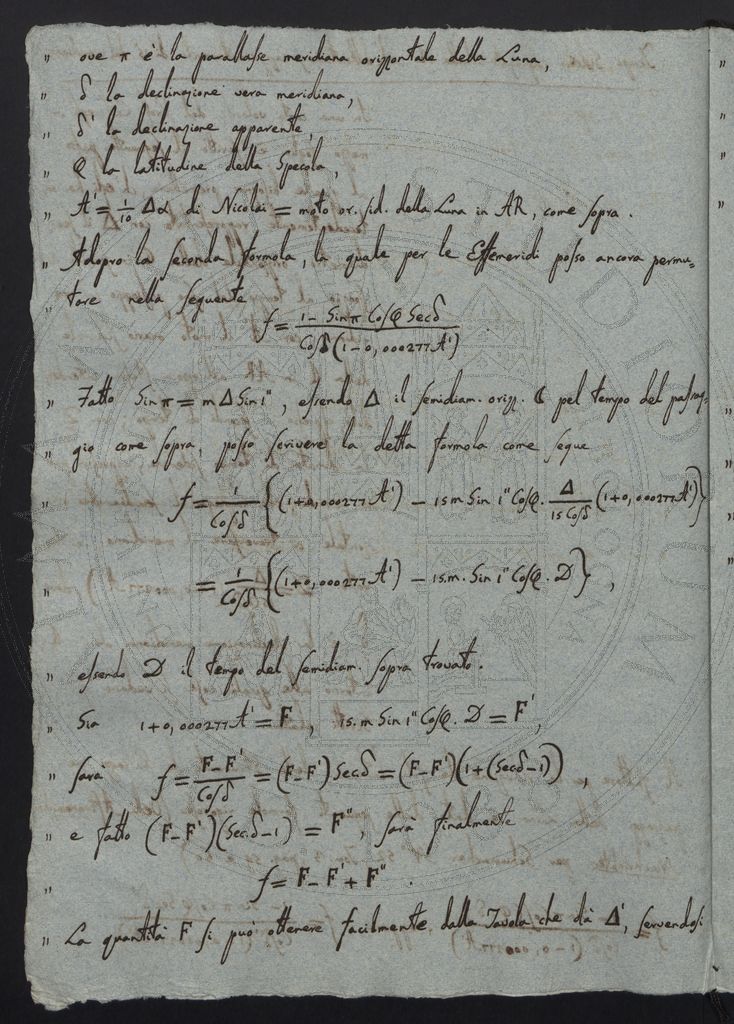 " ove π è la parallasse meridiana orizzontale della Luna,
" δ la declinazione vera meridiana,
" δ' la declinazione apparente,
" φ la latitudine della Specola,
" A' = 1/10 Δα di Nicolai = moto or. sid. della Luna in AR, come sopra.
" Adopro la seconda formola, la quale per le Effemeridi posso ancora permu-
" tare nella seguente
f = (1 - Sin π Cos φ Sec δ) / (Cos δ (1 - 0,000277 A'))
" Fatto Sin π = m Δ Sin 1", essendo Δ il semidiam. orizz. ☾ pel tempo del passag-
" gio come sopra, posso scrivere la detta formola come segue
" f = 1/Cos δ {(1+0,000277 A') - 15 m Sin 1" Cos φ . Δ/(15 Cos δ) (1+0,000277 A')}
" = 1/Cos δ {(1+0,000277 A') - 15.m. Sin 1" Cos φ . D} ,
" essendo D il tempo del semidiam. sopra trovato.
" Sia 1+0,000277 A' = F , 15.m Sin 1" Cos φ . D = F',
" sarà f = (F-F')/Cos δ = (F-F') Sec δ = (F-F')(1+(Sec δ-1)) ,
" e fatto (F-F')(Sec. δ-1) = F", sarà finalmente
" f = F-F'+F" .
" La quantità F si può ottenere facilmente dalla Tavola che dà Δ', servendosi